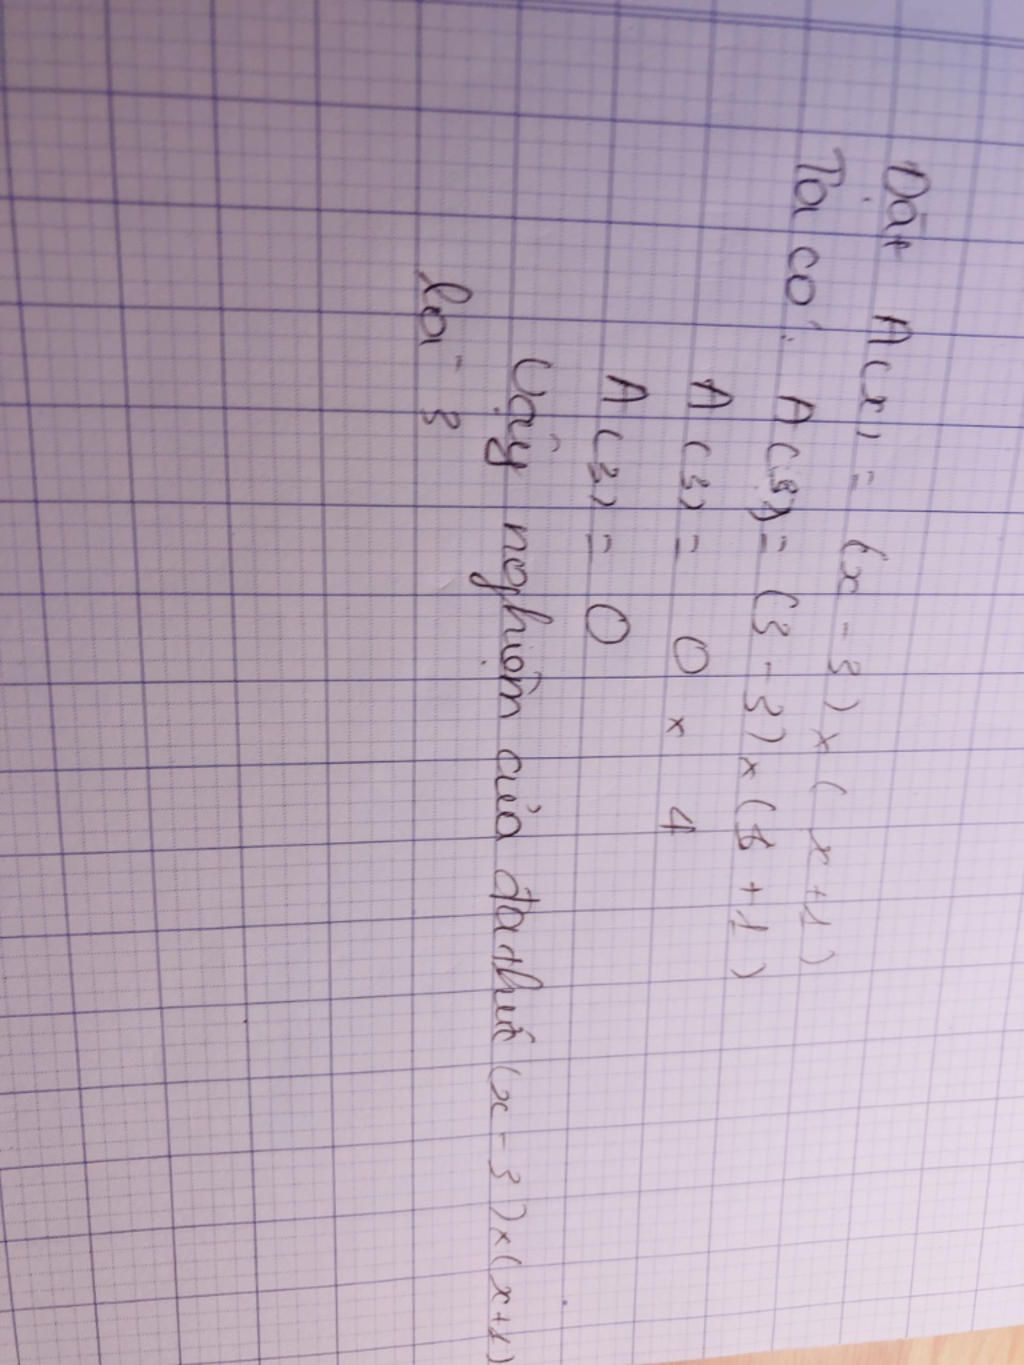 Đặt A(x) = (x - 3) × (x + 1)
Ta có: A(3) = (3 - 3) × (3 + 1)
A(3) = 0 × 4
A(3) = 0
Vậy nghiệm của đa thức (x - 3) × (x + 1)
là 3